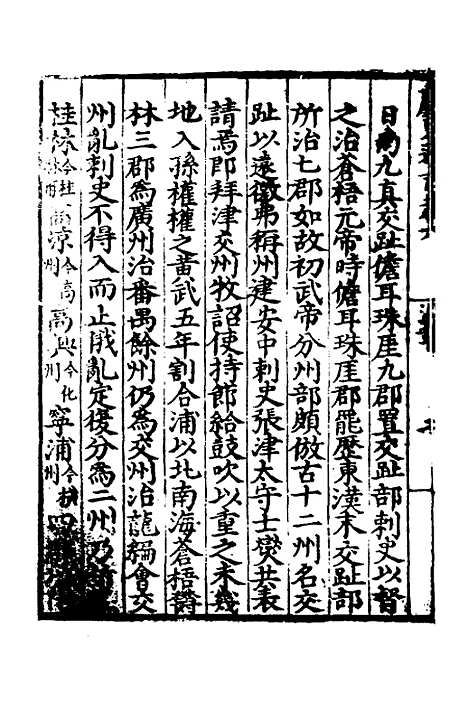 日南九真交趾儋耳珠厓九郡置交趾部刺史以督
之治蒼梧元帝時儋耳珠厓郡罷歷東漢末交趾部
所治七郡如故初武帝分州部頗倣古十二州名交
趾以遠徼弗稱州建安中刺史張津太守士燮共表
請焉即拜津交州牧詔使持節給鼓吹以重之未幾
地入孫權權之黃武五年割合浦以北南海蒼梧欝
林三郡為廣州治番禺餘州仍為交州治龍編會交
州亂刺史不得入而止戩亂定復分為二州乃
桂林今桂林州高凉今高州高興今化州寧浦今橫州四